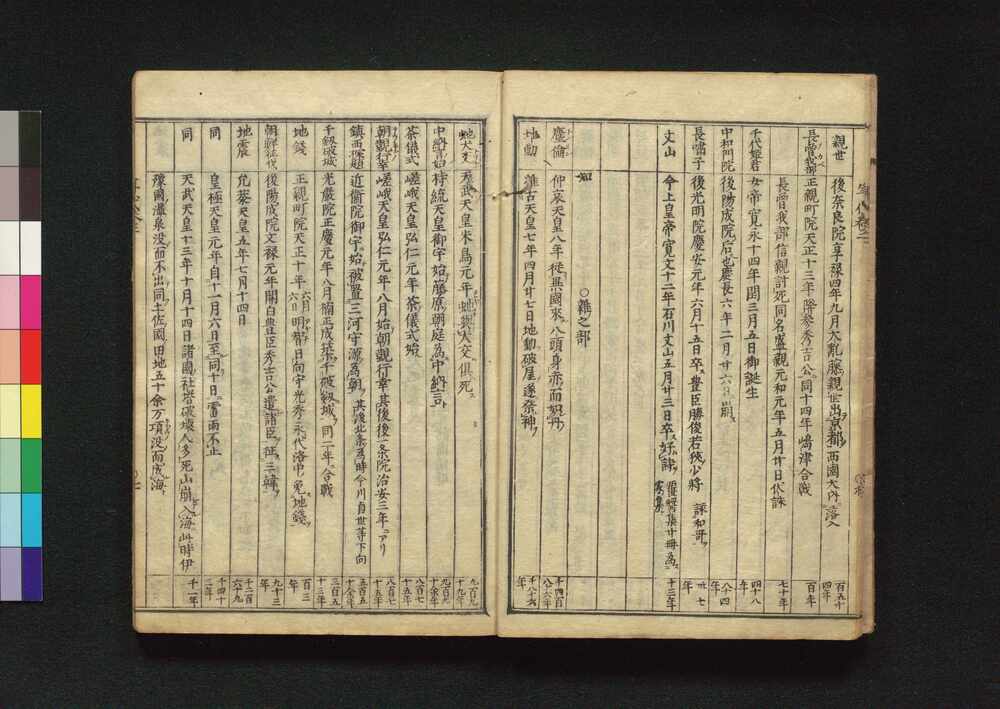 親世
後奈良院享禄四年九月大乱藤親世出京都西國大内落入
百五十四年
長曽我部
正親町院天正十三年降参秀吉公同十四年嶋津合戦
百年
長曽我部信親討死同名盛親元和元年五月廿日伏誅
七十年
千代姫君
女帝寛永十四年閏三月五日御誕生
四十八年
中和門院
後陽成院后也慶長六年二月廿六日崩
八十四年
長嘯子
後光明院慶安元年六月十五日卒豊臣勝俊若狭少将 詠和哥
卅七年
丈山
今上皇帝寛文十二年石川丈山五月廿三日卒好詩
十三年
○雜之部
塵倫
仲哀天皇八年從異國來八頭身赤而如丹
千四百八十六年
地動
推古天皇七年四月廿七日地動破屋遂祭神
千八十六年
蛇犬交
天武天皇朱鳥元年蛇與犬交俱死
九百九十九年
中納言始
持統天皇御宇始藤原朝庭為中納言
九百九十余年
茶儀式
嵯峨天皇弘仁元年茶儀式始
八百七十五年
朝覲行幸
嵯峨天皇弘仁元年八月始朝覲行幸其後後一条院治安三年アリ
八百七十五年
鎮西探題
近衛院御宇始被置三河守源為朝其後北条為時今川貞世等下向
五百四十余年
千釼破城
光嚴院正慶元年八月楠正成築千破釼城同二年合戦
三百五十三年
地銭
正親町院天正十年六月六日明智日向守光秀永代洛中免地銭
百三年
朝鮮征伐
後陽成院文禄元年関白豊臣秀吉公遣諸臣征三韓
九十三年
地震
允恭天皇五年七月十四日
千二百六十九
同
皇極天皇元年自十一月六日至同十日雷雨不止
千四十二年
同
天武天皇十三年十月十四日諸國社塔破壊人多死山崩入海此時伊
千一年
豫國温泉没而不出同土佐國田地五十余万頃没而成海